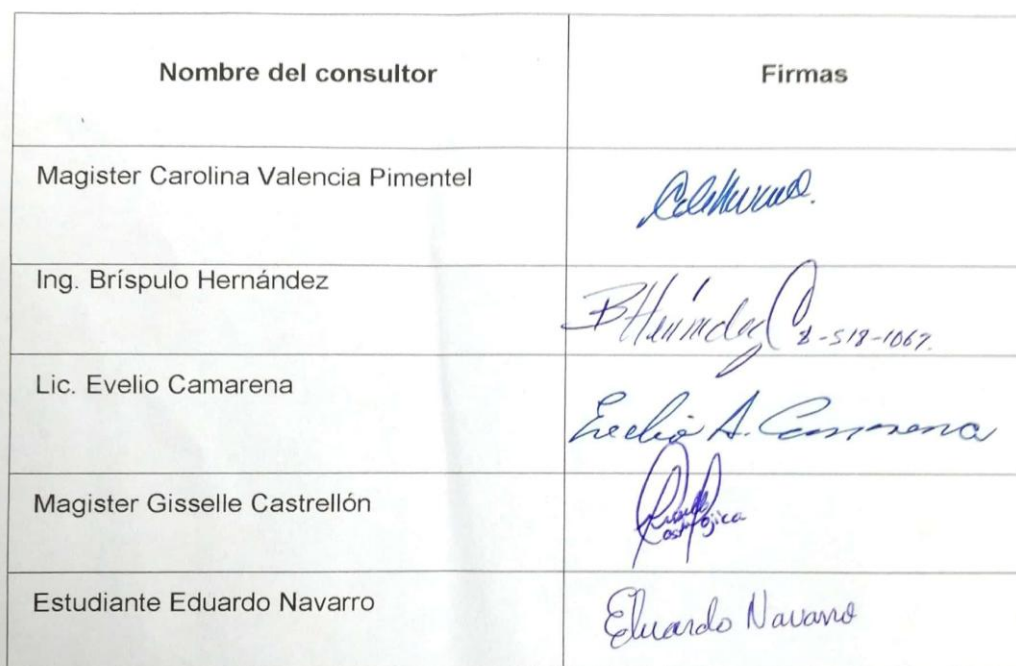 Nombre del consultor
Firmas
Magister Carolina Valencia Pimentel
Ing. Bríspulo Hernández
BHernández C 8-518-1067.
Lic. Evelio Camarena
Evelio A. Camarena
Magister Gisselle Castrellón
Estudiante Eduardo Navarro
Eduardo Navarro